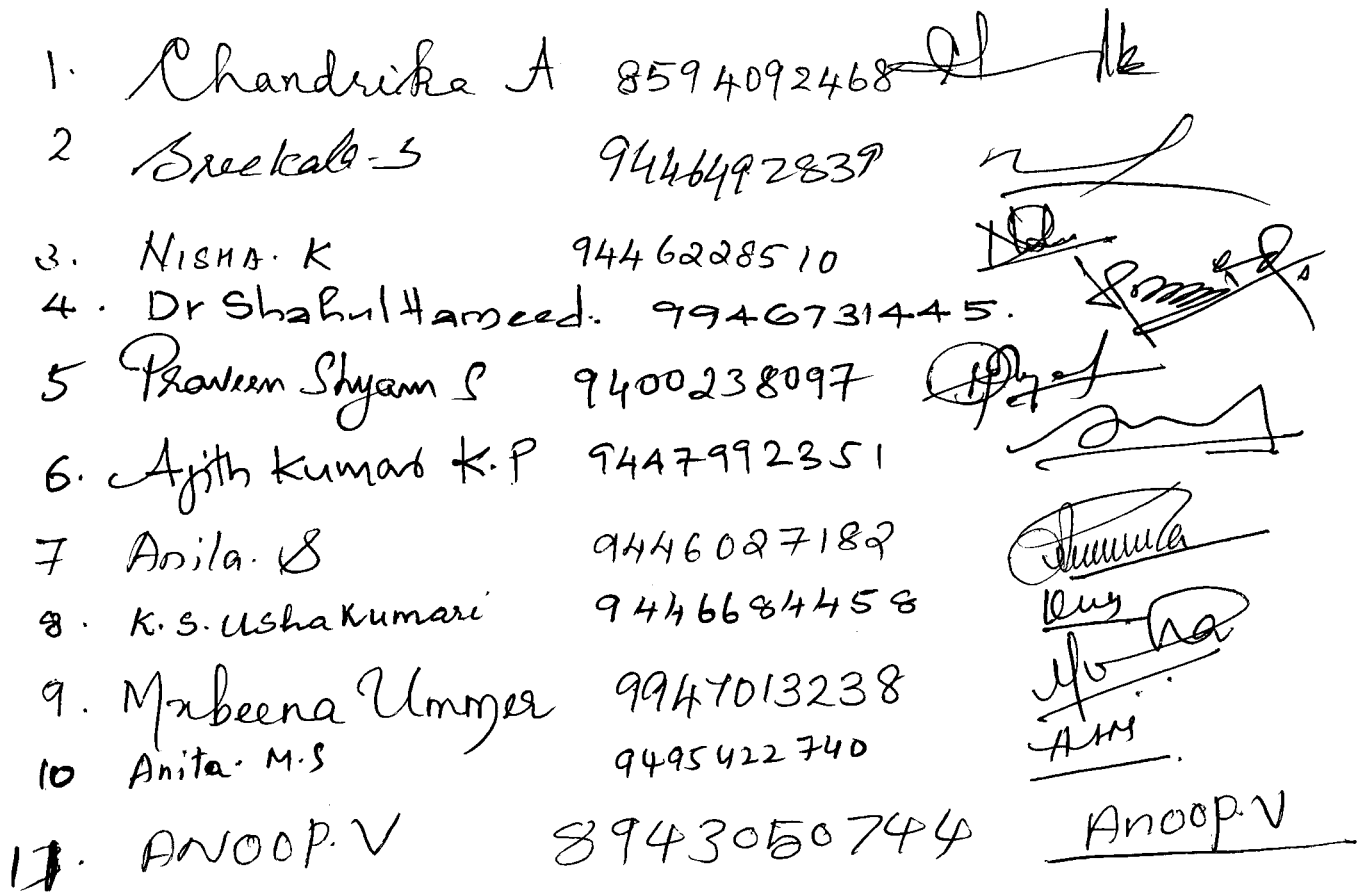 1. Chandrika A 8594092468
2 Sreekala-S 9446492839
3. NISHA. K 9446228510
4. Dr Shahul Hameed. 9946731445.
5 Praveen Shyam S 9400238097
6. Ajith Kumar K.P 9447992351
7 Anila. S 9446027182
8. K. S. Usha Kumari 9446684458
9. Mubeena Ummer 9947013238
10 Anita. M.S 9495422740
11. ANOOP. V 8943050744 Anoop. V